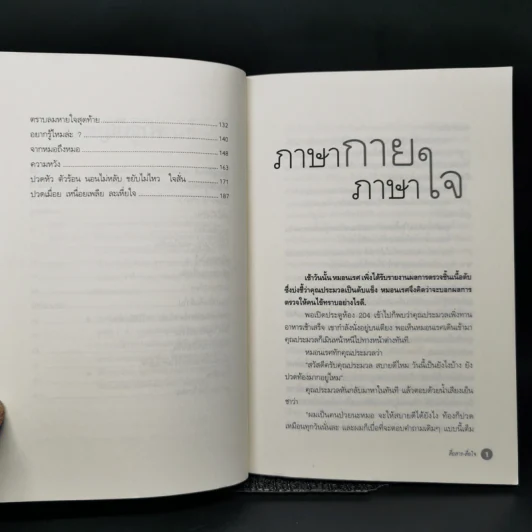 ตราบลมหายใจสุดท้าย 132
อยากรู้ไหมล่ะ ? 140
จากหมอถึงหมอ 148
ความหวัง 163
ปวดหัว ตัวร้อน นอนไม่หลับ ขยับไม่ไหว ใจสั่น 171
ปวดเมื่อย เหนื่อยเพลีย ละเหี่ยใจ 187
ภาษากาย
ภาษาใจ
เช้าวันนั้น หมอนเรศ เพิ่งได้รับรายงานผลการตรวจชิ้นเนื้อตับ
ซึ่งบ่งชี้ว่าคุณประมวลเป็นตับแข็ง หมอนเรศจึงคิดว่าจะบอกผลการ
ตรวจให้คนไข้ทราบอย่างไรดี
พอเปิดประตูห้อง 204 เข้าไปก็พบว่าคุณประมวลเพิ่งทาน
อาหารเช้าเสร็จ เขากำลังนั่งอยู่บนเตียง พอเห็นหมอนเรศเดินเข้ามา
คุณประมวลก็เมินหน้าหนีไปทางหน้าต่างทันที
หมอนเรศทักคุณประมวลว่า
"สวัสดีครับคุณประมวล สบายดีไหม วันนี้เป็นยังไงบ้าง ยัง
ปวดท้องมากอยู่ไหม"
คุณประมวลหันกลับมาหาในทันที แล้วตอบด้วยน้ำเสียงเย็น
ชาว่า
"ผมเป็นคนป่วยนะหมอ จะให้สบายดีได้ยังไง ท้องก็ปวด
เหมือนทุกวันนั่นละ และผมก็เบื่อที่จะตอบคำถามเดิมๆ แบบนี้เต็ม
สื่อสาร-สื่อใจ 1